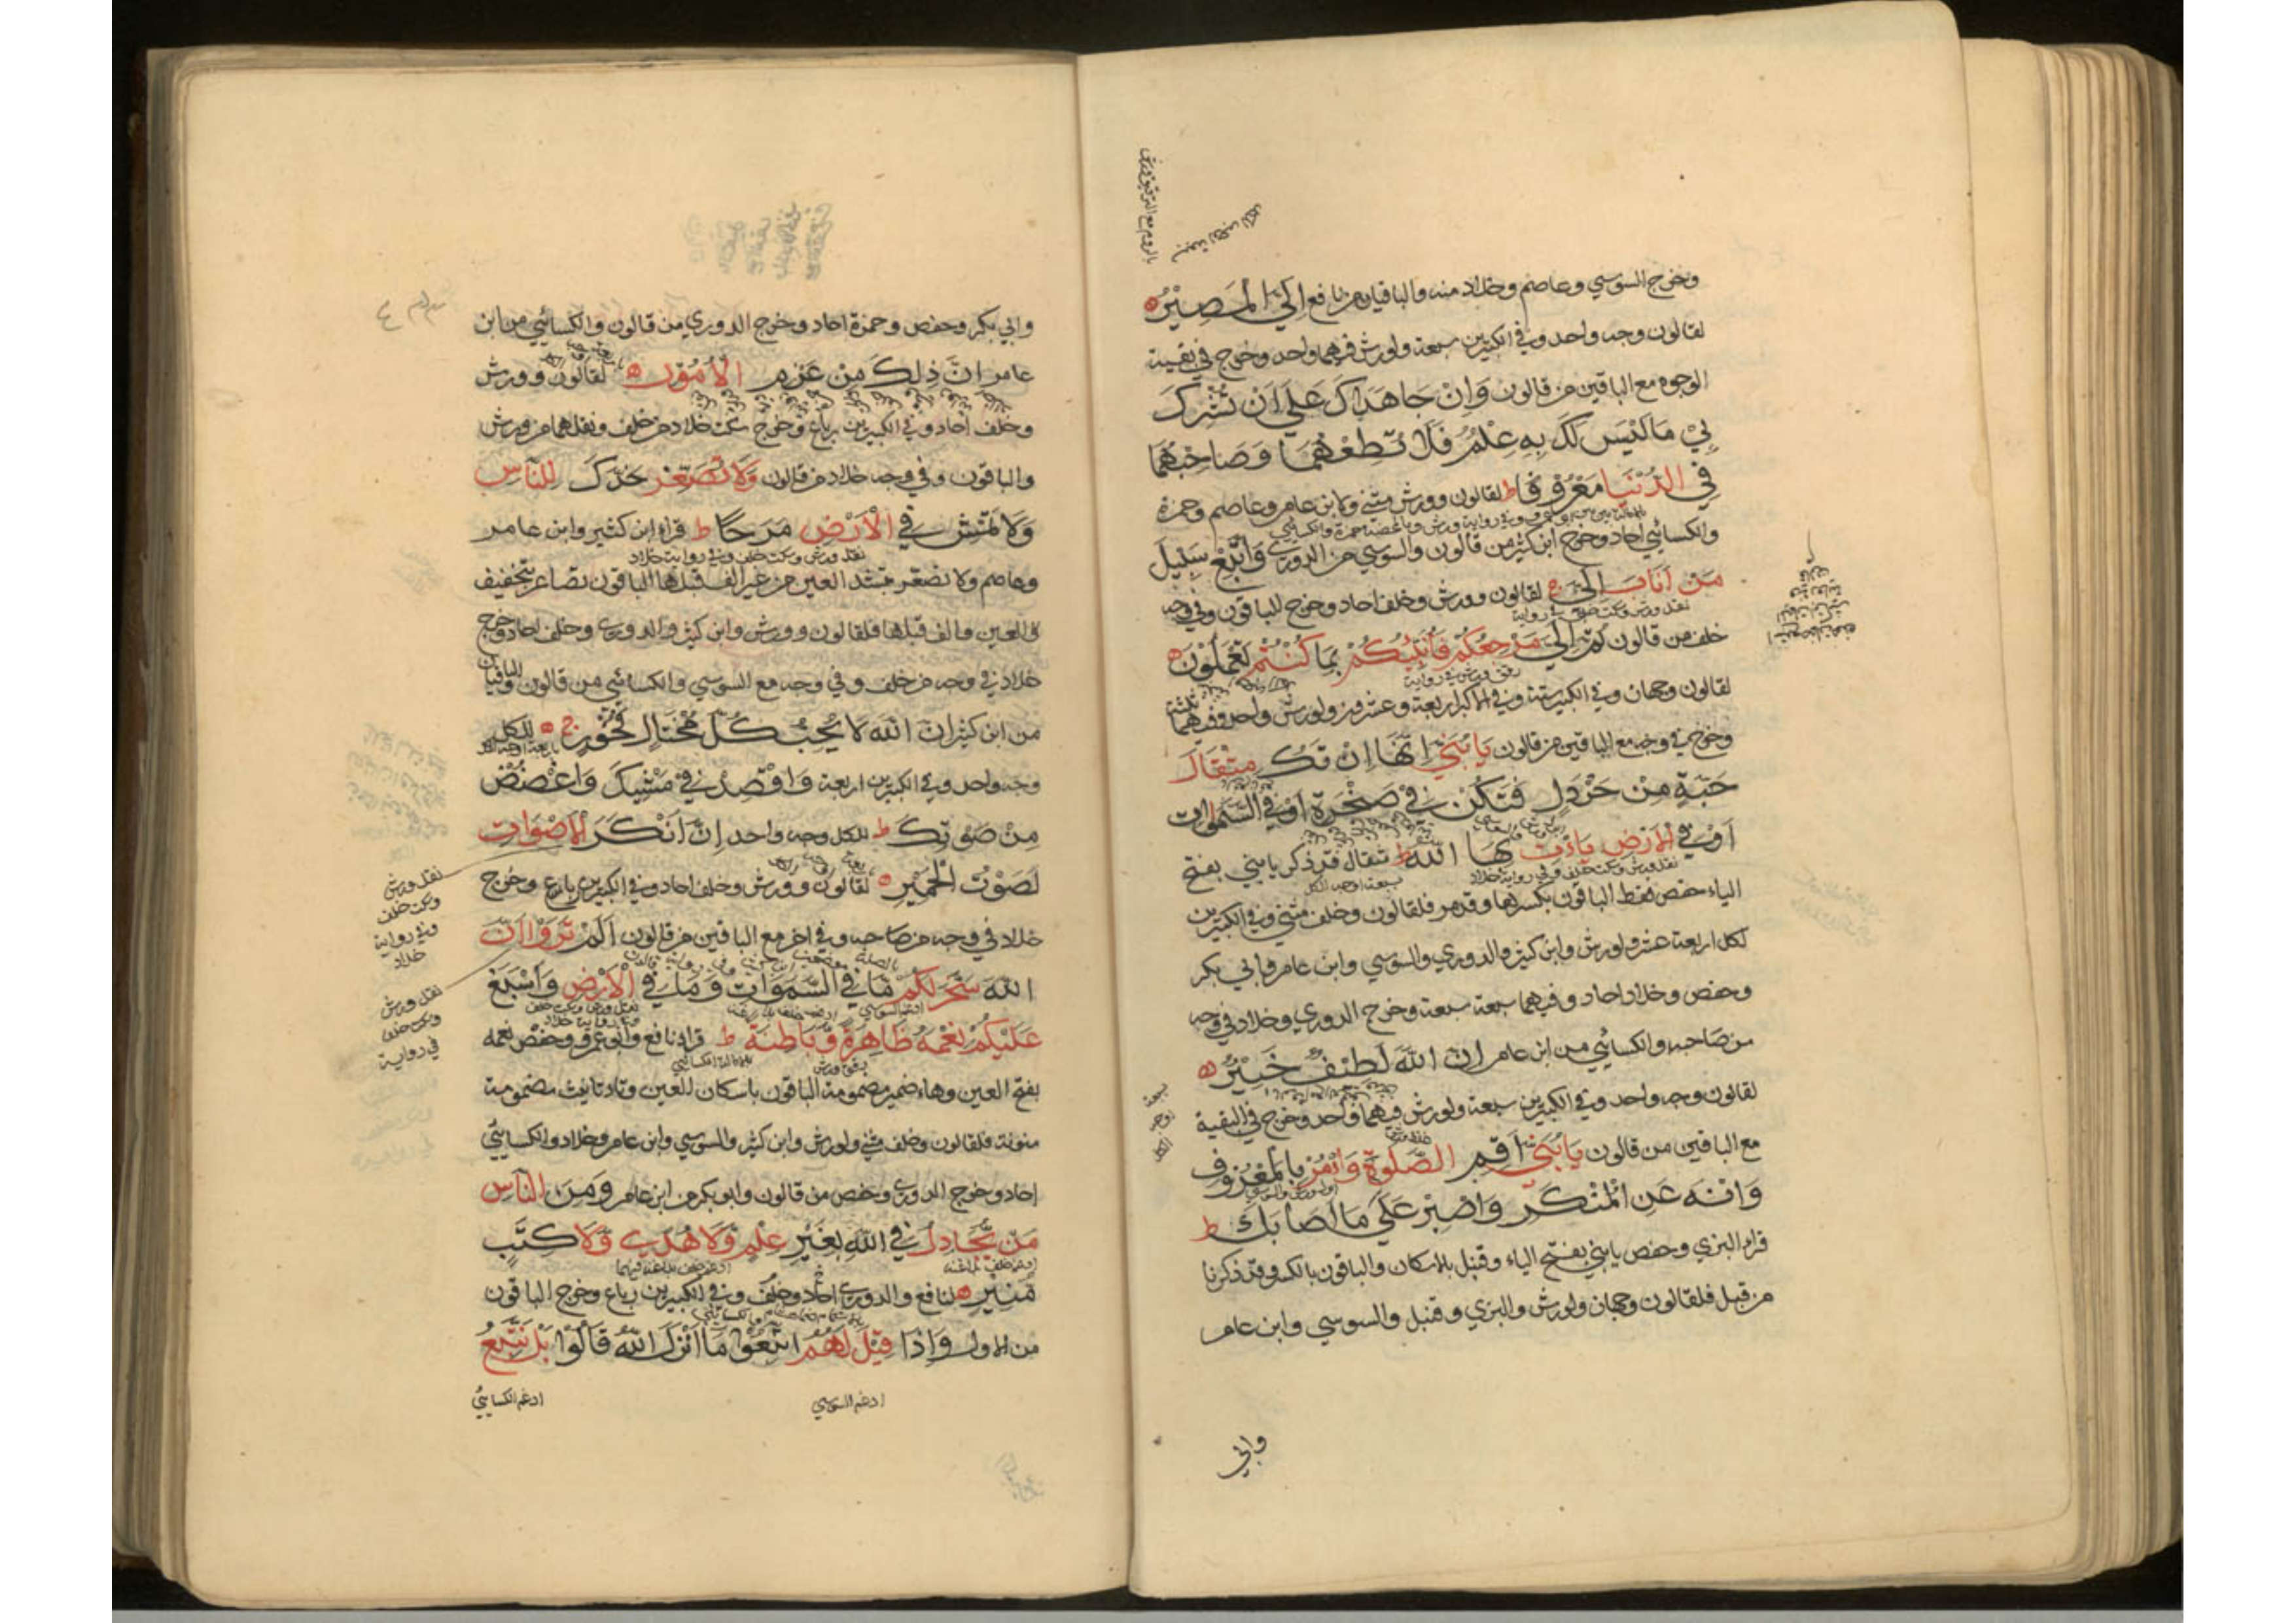 وخرج السوسي وعاصم وخلاد منه والباقيان من نافع إِلَيَّ الْمَصِيْرُ
لقالون وجه واحد وفي الكبيرين سبعة ولورش فيهما واحد وخرج في بقية
الوجوه مع الباقين من قالون وَاِنْ جَاهَدَاكَ عَلَى اَنْ تُشْرِكَ
بِيْ مَا لَيْسَ لَكَ بِهِ عِلْمٌ فَلَا تُطِعْهُمَا وَصَاحِبْهُمَا
فِي الدُّنْيَا مَعْرُوْفًا ط لقالون وورش مثنى وابن عامر وعاصم وحمزة
والكسائي احاد وخرج ابن كثير من قالون والسوسي من الدوري وَاتَّبِعْ سَبِيْلَ
مَنْ اَنَابَ اِلَيَّ لقالون وورش وخلف احاد وخرج للباقون وفي وجه
نقل ورش وسكت خلف وفي رواية
خلف من قالون ثُمَّ اِلَيَّ مَرْجِعُكُمْ فَاُنَبِّئُكُمْ بِمَا كُنْتُمْ تَعْمَلُوْنَ
لقالون وجهان وفي الكبير ستة وفي الاكبر اربعة وعشرون ولورش واحد وفيهما ثلثة
وخرج في وجه مع الباقين من قالون يَا بُنَيَّ اِنَّهَا اِنْ تَكُ مِثْقَالَ
حَبَّةٍ مِنْ خَرْدَلٍ فَتَكُنْ فِيْ صَخْرَةٍ اَوْ فِي السَّمٰوَاتِ
اَوْ فِي الْاَرْضِ يَاْتِ بِهَا اللّٰهُ ط مثقال قد ذكر يا بني بفتح
نقل ورش وسكت خلف وفي رواية خلاد
سبعة اوجه للكل
الياء حفص فقط الباقون بكسرها وقد مر فلقالون وخلف مثنى وفي الكبيرين
لكل اربعة عشر ولورش وابن كثير والدوري والسوسي وابن عامر وابي بكر
وحفص وخلاد احاد وفيهما سبعة سبعة وخرج الدوري وخلاد في وجه
من صاحبه والكسائي من ابن عامر اِنَّ اللّٰهَ لَطِيْفٌ خَبِيْرٌ
لقالون وجه واحد وفي الكبيرين سبعة ولورش فيهما واحد وخرج في البقية
مع الباقين من قالون يَا بُنَيَّ اَقِمِ الصَّلٰوةَ وَاْمُرْ بِالْمَعْرُوْفِ
وَانْهَ عَنِ الْمُنْكَرِ وَاصْبِرْ عَلٰى مَا اَصَابَكَ ط
قراء البزي وحفص يا بني بفتح الياء وقنبل بالاسكان والباقون بالكسر وقد ذكرنا
من قبل فلقالون وجهان ولورش والبزي وقنبل والسوسي وابن عامر
وابي
سبعة
اوجه
للكل
بالروم مع الترقيق ورش
سبعة اوجه للكل
وابي بكر وحفص وحمزة احاد وخرج الدوري من قالون والكسائي من ابن
عامر اِنَّ ذٰلِكَ مِنْ عَزْمِ الْاُمُوْرِ لقالون وورش
وخلف احاد وفي الكبيرين رباع وخرج سكت خلاد من خلف ونقلهما من ورش
والباقون وفي وجه خلاد من قالون وَلَا تُصَعِّرْ خَدَّكَ لِلنَّاسِ
وَلَا تَمْشِ فِي الْاَرْضِ مَرَحًا ط قراء ابن كثير وابن عامر
نقل ورش وسكت خلف وفي رواية خلاد
وعاصم ولا تصعر بتشديد العين من غير الف قبلها الباقون تصاعر بتخفيف
العين والف قبلها فلقالون وورش وابن كثير والدوري وخلف احاد وخرج
خلاد في وجه من خلف وفي وجه مع السوسي والكسائي من قالون والباقيان
من ابن كثير اِنَّ اللّٰهَ لَا يُحِبُّ كُلَّ مُخْتَالٍ فَخُوْرٍ ج للكل
باربعة اوجه للكل
وجه واحد وفي الكبيرين اربعة وَاقْصِدْ فِيْ مَشْيِكَ وَاغْضُضْ
مِنْ صَوْتِكَ ط للكل وجه واحد اِنَّ اَنْكَرَ الْاَصْوَاتِ
لَصَوْتُ الْحَمِيْرِ لقالون وورش وخلف احاد وفي الكبيرين رباع وخرج
خلاد في وجه من صاحبه وفي اخر مع الباقين من قالون اَلَمْ تَرَوْا اَنَّ
اللّٰهَ سَخَّرَ لَكُمْ مَا فِي السَّمٰوَاتِ وَمَا فِي الْاَرْضِ وَاَسْبَغَ
عَلَيْكُمْ نِعَمَهُ ظَاهِرَةً وَّبَاطِنَةً ط قراء نافع وابو عمرو وحفص نعمه
بفتح العين وهاء ضمير مضمومة الباقون باسكان العين وتاء تانيث مضمومة
منونة فلقالون وخلف مثنى ولورش وابن كثير والسوسي وابن عامر وخلاد والكسائي
احاد وخرج الدوري وحفص من قالون وابو بكر من ابن عامر وَمِنَ النَّاسِ
مَنْ يُّجَادِلُ فِي اللّٰهِ بِغَيْرِ عِلْمٍ وَّلَا هُدًى وَّلَا كِتٰبٍ
مُّنِيْرٍ لنافع والدوري احاد وخلف وفي الكبيرين رباع وخرج الباقون
من الاول وَاِذَا قِيْلَ لَهُمُ اتَّبِعُوْا مَا اَنْزَلَ اللّٰهُ قَالُوْا بَلْ نَتَّبِعُ
ادغم السوسي
ادغم الكسائي
نقل ورش
وسكت خلف
وفي رواية
خلاد
نقل ورش
وسكت خلف
في رواية